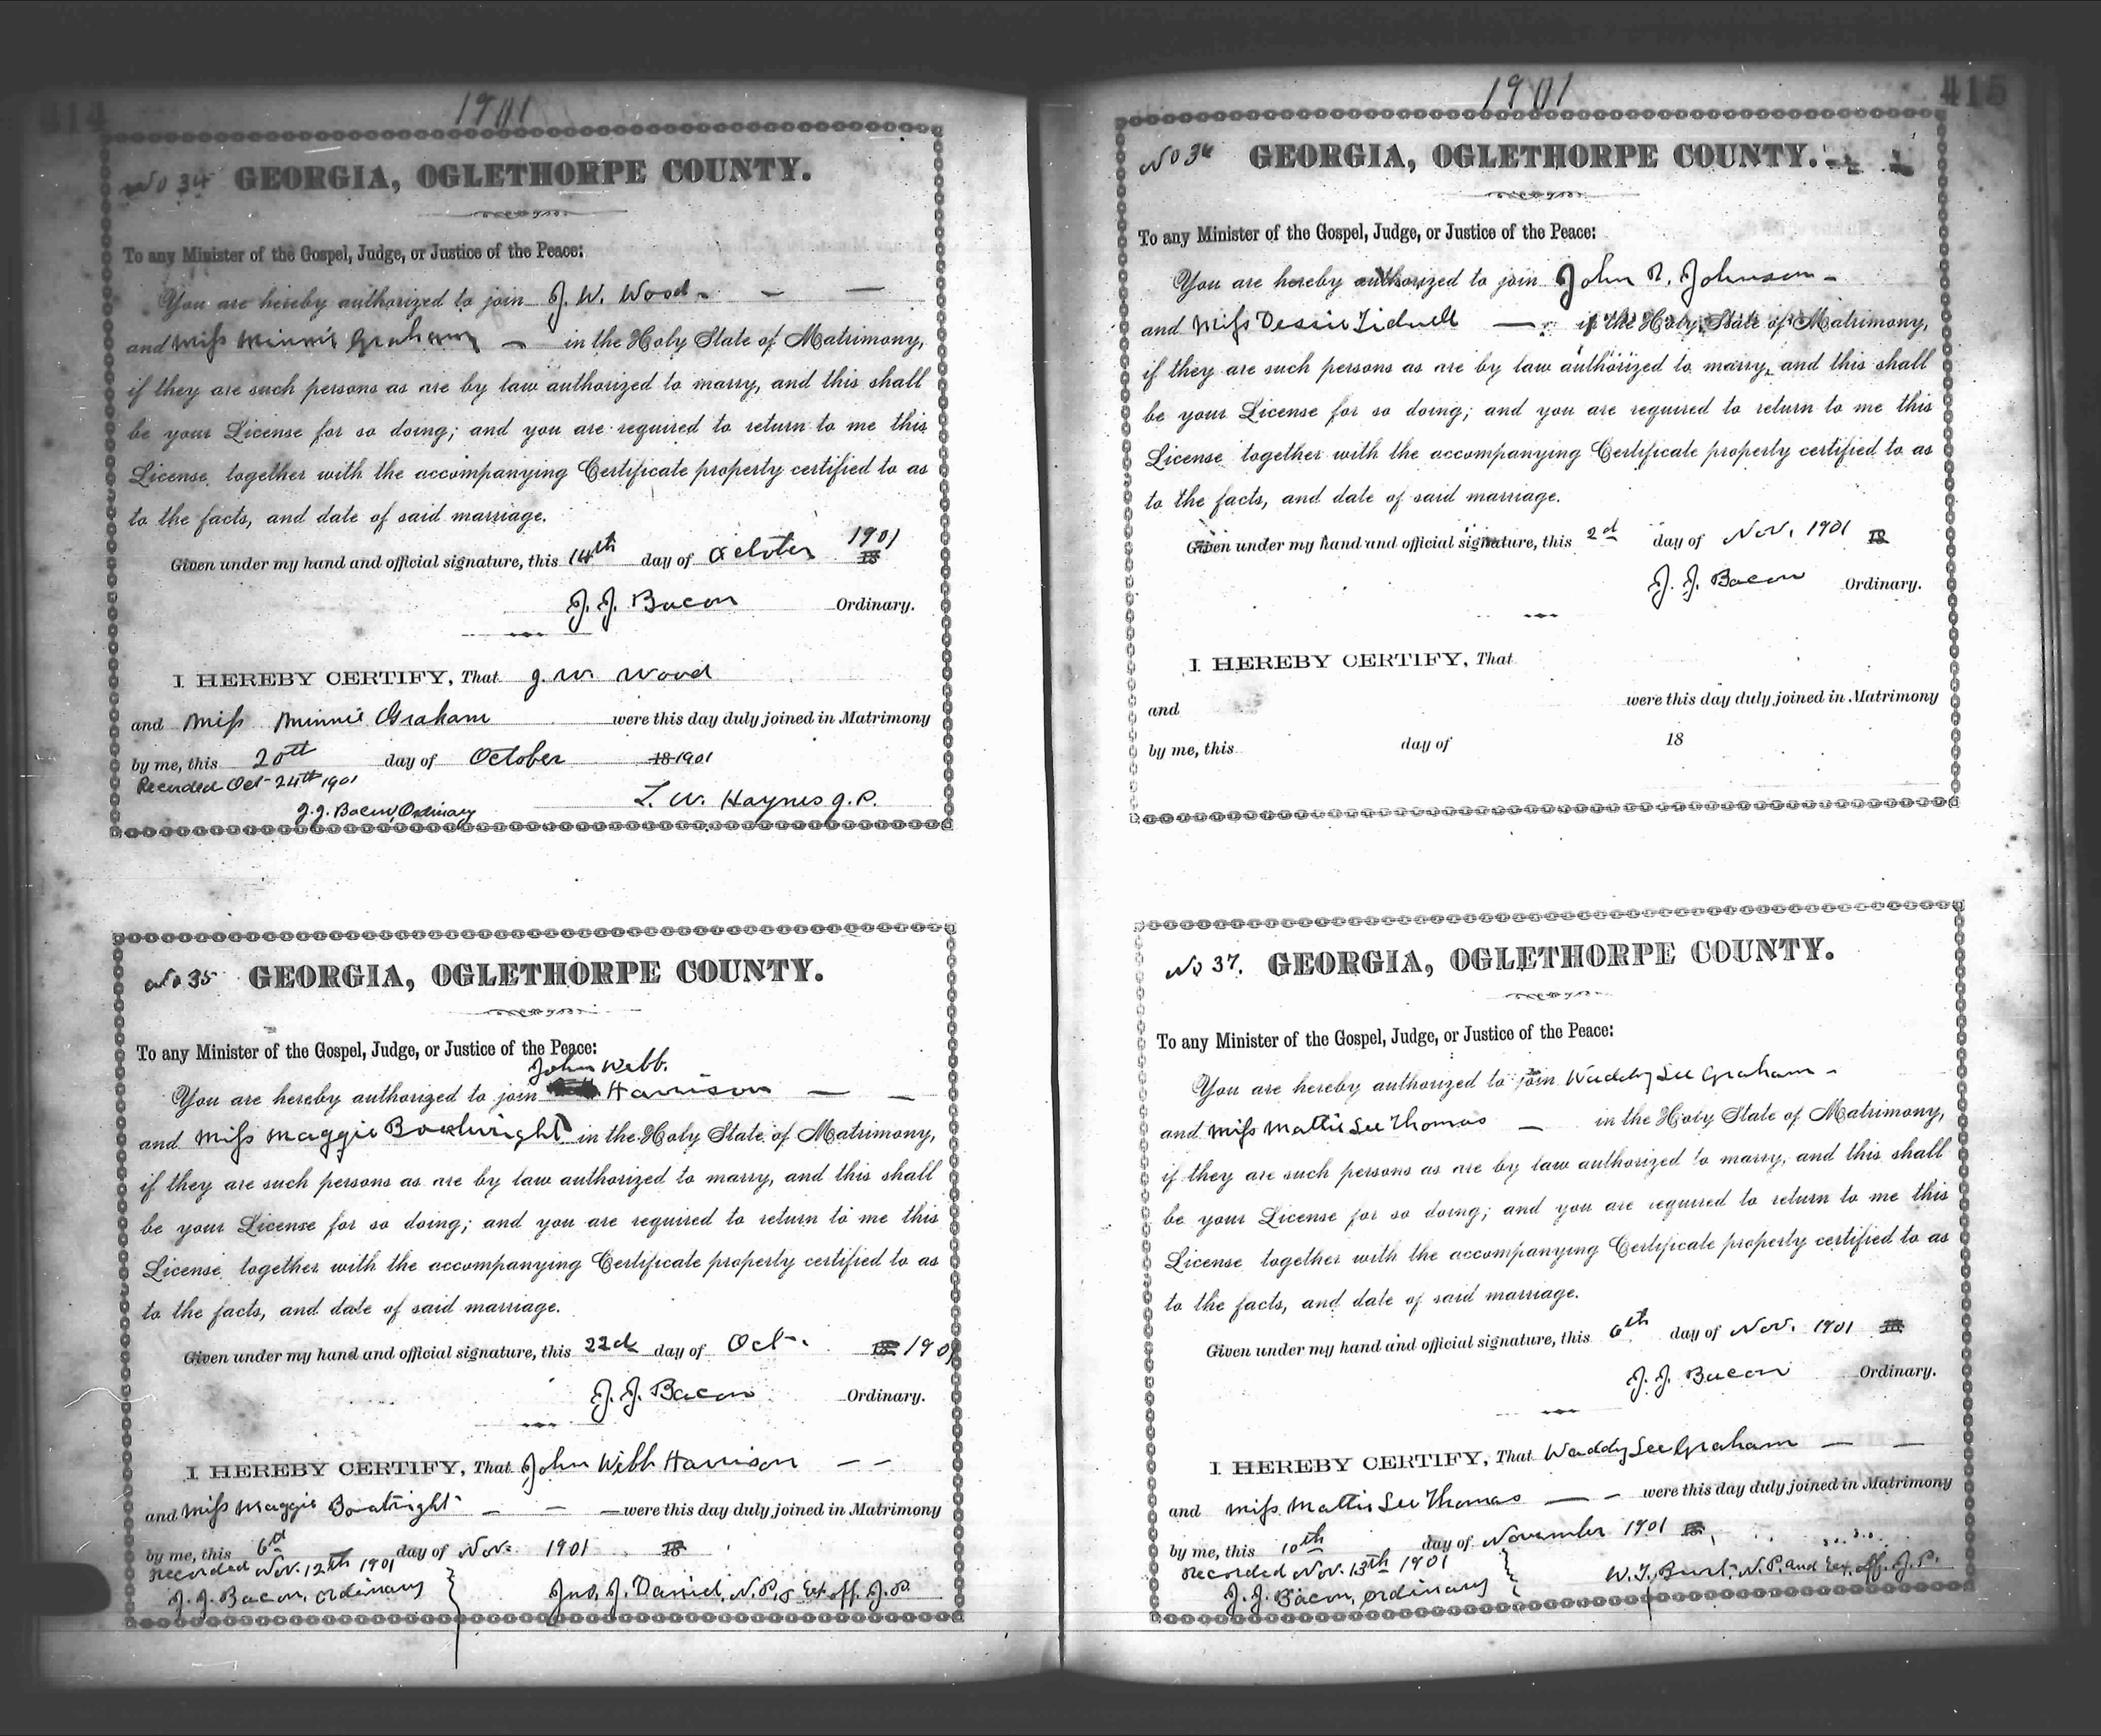 414
1901
No 34 GEORGIA, OGLETHORPE COUNTY.
To any Minister of the Gospel, Judge, or Justice of the Peace:
You are hereby authorized to join J. W. Wood - — —
and Miss Minnie Graham — in the Holy State of Matrimony,
if they are such persons as are by law authorized to marry, and this shall
be your License for so doing; and you are required to return to me this
License together with the accompanying Certificate property certified to as
to the facts, and date of said marriage.
Given under my hand and official signature, this 14th day of October 1901 18
J. J. Bacon Ordinary.
I HEREBY CERTIFY, That J. W. Wood
and Miss Minnie Graham were this day duly joined in Matrimony
by me, this 20th day of October 18 1901
Recorded Oct 24th 1901
J. J. Bacon, Ordinary
L. W. Haynes J. P.
No 35 GEORGIA, OGLETHORPE COUNTY.
To any Minister of the Gospel, Judge, or Justice of the Peace:
John Webb
You are hereby authorized to join Harrison — —
and Miss Maggie Boatwright in the Holy State of Matrimony,
if they are such persons as are by law authorized to marry, and this shall
be your License for so doing; and you are required to return to me this
License together with the accompanying Certificate property certified to as
to the facts, and date of said marriage.
Given under my hand and official signature, this 22d day of Oct. 18 1901
J. J. Bacon Ordinary.
I HEREBY CERTIFY, That John Webb Harrison — —
and Miss Maggie Boatright — — — were this day duly joined in Matrimony
by me, this 6d day of Nov. 1901 18
Recorded Nov. 12th 1901
J. J. Bacon, Ordinary
Jno. J. Daniel, N. P. & Ex. off. J. P.
415
1901
No 36 GEORGIA, OGLETHORPE COUNTY.
To any Minister of the Gospel, Judge, or Justice of the Peace:
You are hereby authorized to join John Johnson -
and Miss Dessie Tidwell — in the Holy State of Matrimony,
if they are such persons as are by law authorized to marry, and this shall
be your License for so doing; and you are required to return to me this
License together with the accompanying Certificate property certified to as
to the facts, and date of said marriage.
Given under my hand and official signature, this 2d day of Nov. 1901 18
J. J. Bacon Ordinary.
I HEREBY CERTIFY, That
and were this day duly joined in Matrimony
by me, this day of 18
No 37. GEORGIA, OGLETHORPE COUNTY.
To any Minister of the Gospel, Judge, or Justice of the Peace:
You are hereby authorized to join Waddy Lee Graham -
and Miss Mattie Lee Thomas — in the Holy State of Matrimony,
if they are such persons as are by law authorized to marry, and this shall
be your License for so doing; and you are required to return to me this
License together with the accompanying Certificate property certified to as
to the facts, and date of said marriage.
Given under my hand and official signature, this 6th day of Nov. 1901 18
J. J. Bacon Ordinary.
I HEREBY CERTIFY, That Waddy Lee Graham — —
and Miss Mattie Lee Thomas — - were this day duly joined in Matrimony
by me, this 10th day of November 1901 18
Recorded Nov. 13th 1901
J. J. Bacon, Ordinary
W. T. Burt, N. P. and Ex. off. J. P.